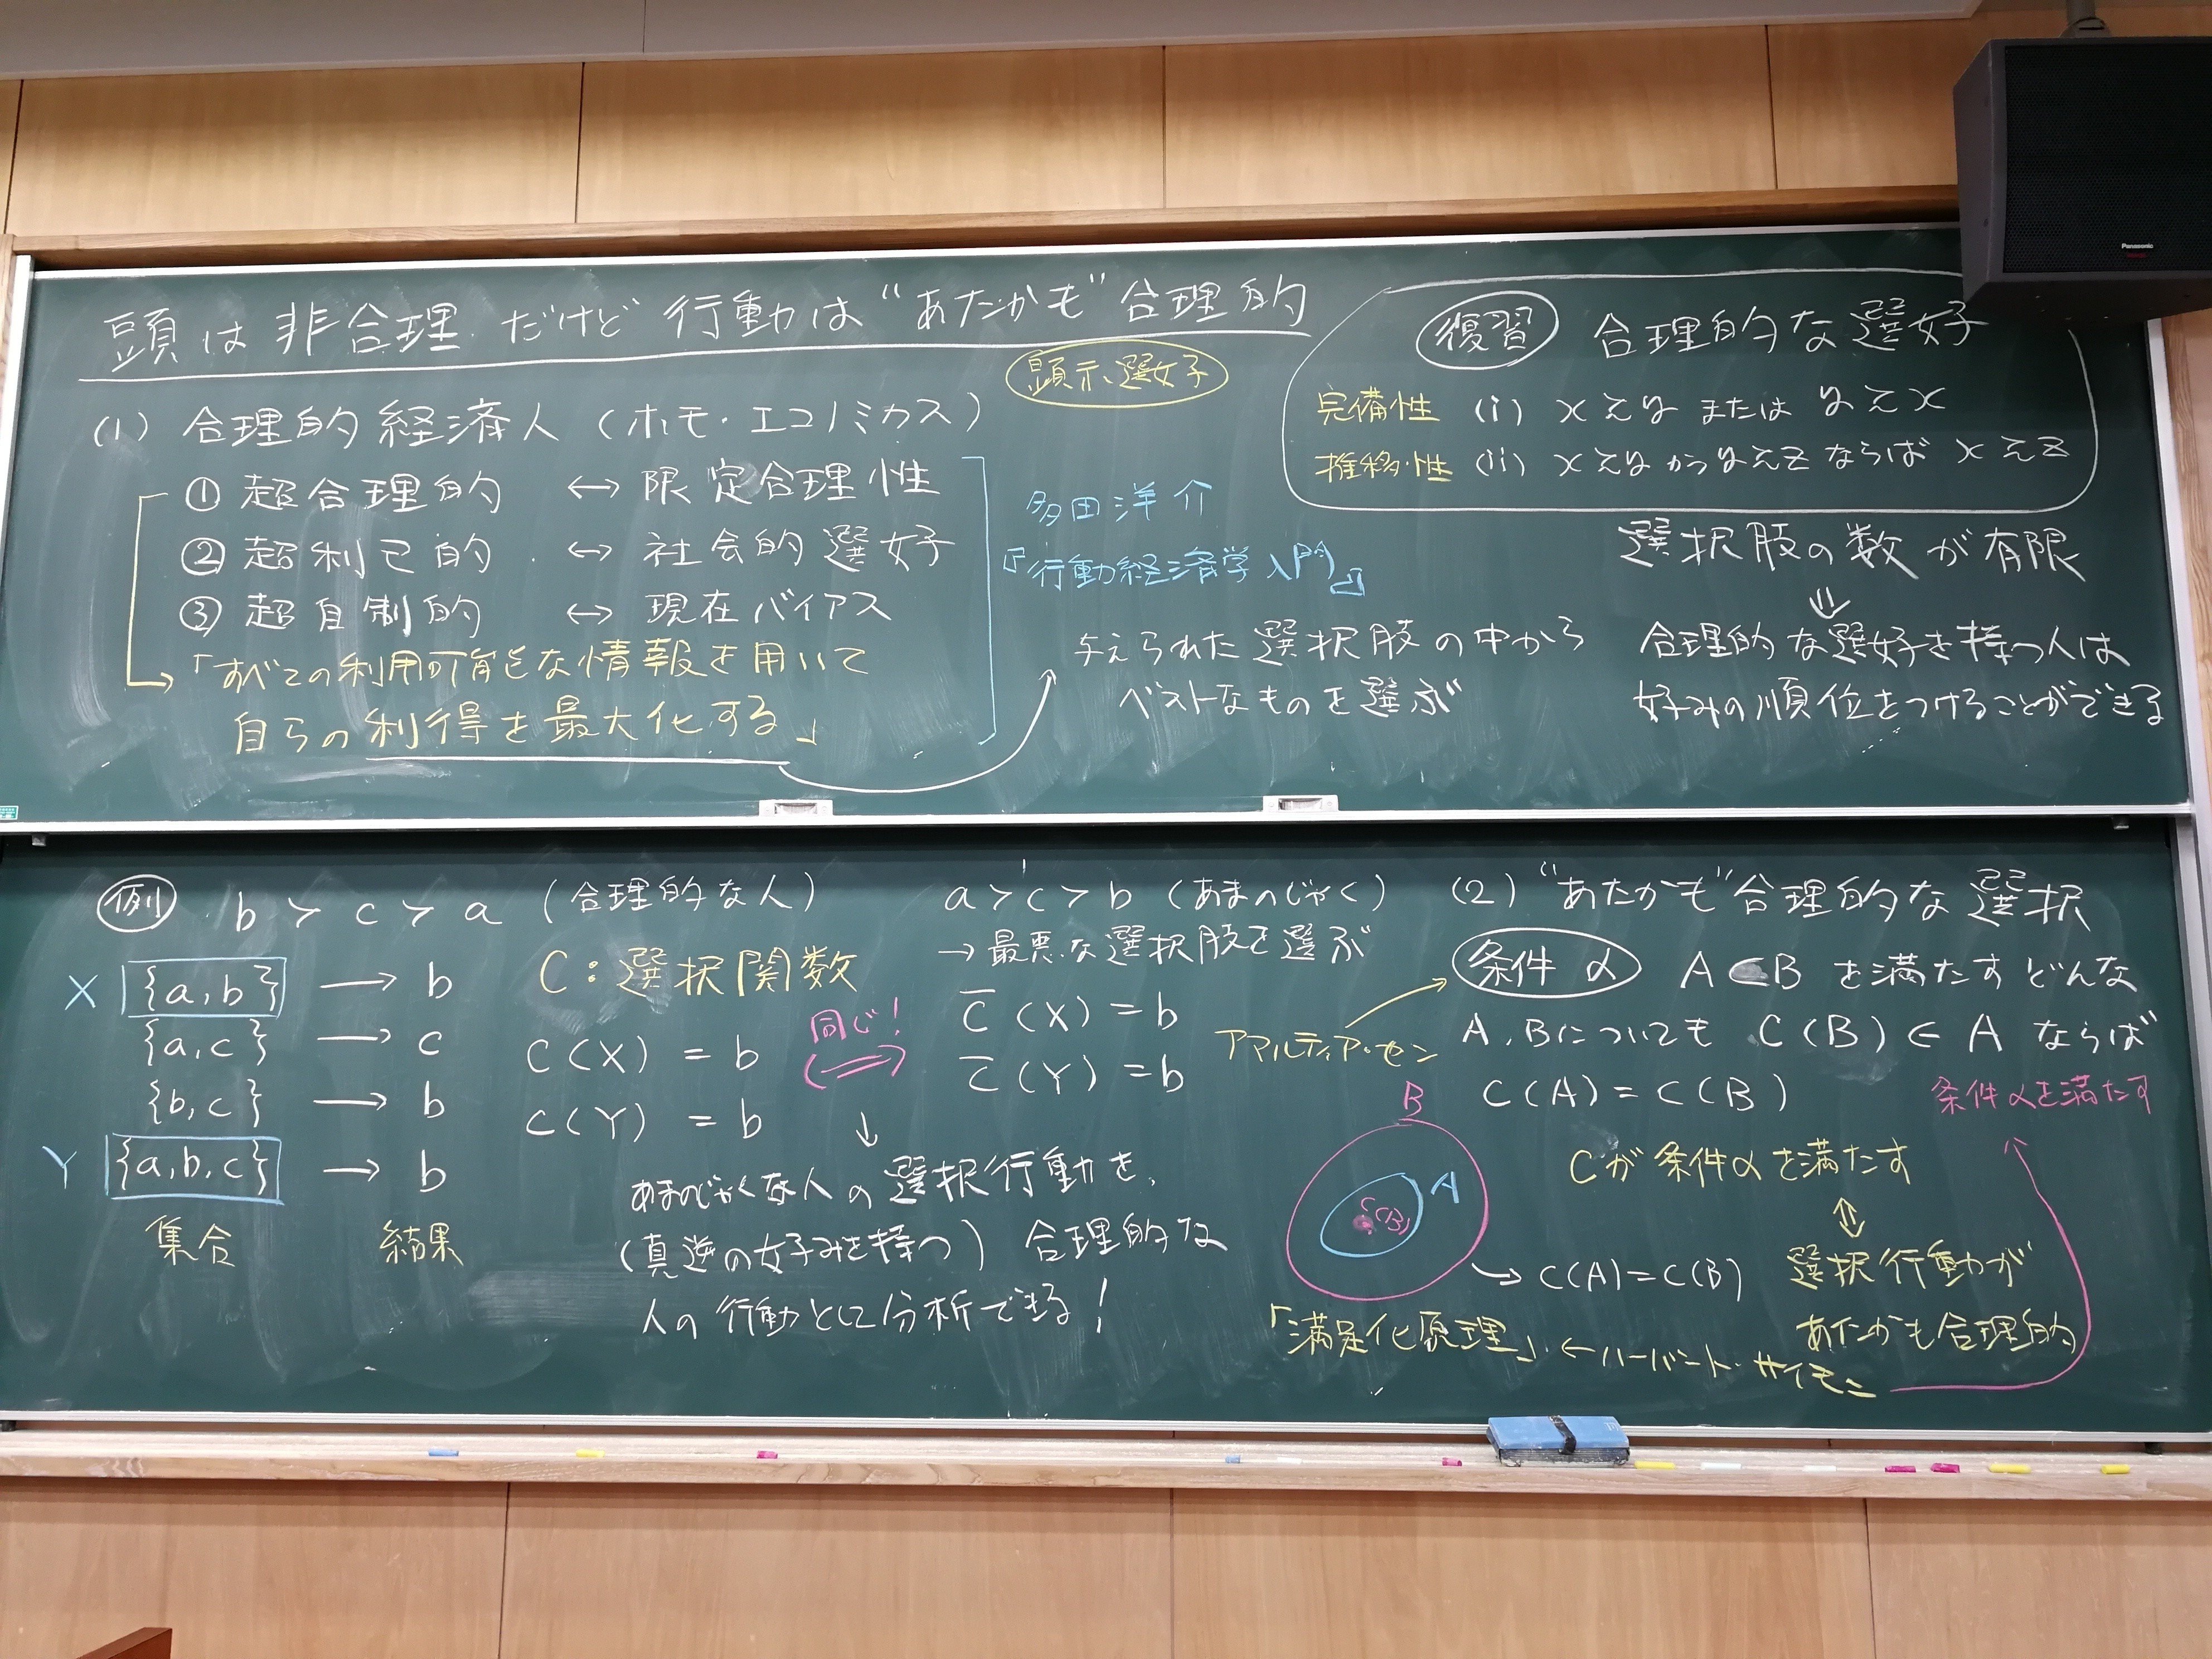 頭は非合理だけど行動は“あたかも”合理的
顕示選好
(1) 合理的経済人（ホモ・エコノミカス）
① 超合理的 ↔ 限定合理性
② 超利己的 ↔ 社会的選好
③ 超自制的 ↔ 現在バイアス
→「すべての利用可能な情報を用いて
自らの利得を最大化する」
多田洋介
『行動経済学入門』
与えられた選択肢の中から
ベストなものを選ぶ
復習 合理的な選好
完備性 (i) x≿y または y≿x
推移性 (ii) x≿y かつ y≿z ならば x≿z
選択肢の数が有限
⇓
合理的な選好を持つ人は
好みの順位をつけることができる
Panasonic
例 b ≻ c ≻ a （合理的な人）
X {a,b} → b
{a,c} → c
{b,c} → b
Y {a,b,c} → b
集合 結果
C：選択関数
C(X) = b
C(Y) = b
同じ！
↔
a ≻ c ≻ b （あまのじゃく）
→ 最悪な選択肢を選ぶ
C̄(X) = b
C̄(Y) = b
↓
あまのじゃくな人の選択行動を、
（真逆の好みを持つ）合理的な
人の行動として分析できる！
(2) “あたかも”合理的な選択
条件α A⊂B を満たすどんな
アマルティア・セン
A,Bについても C(B)∈A ならば
C(A)=C(B)
B
A
C(B)
→ C(A)=C(B)
Cが条件αを満たす
⇕
選択行動が
あたかも合理的
条件αを満たす
「満足化原理」←ハーバート・サイモン